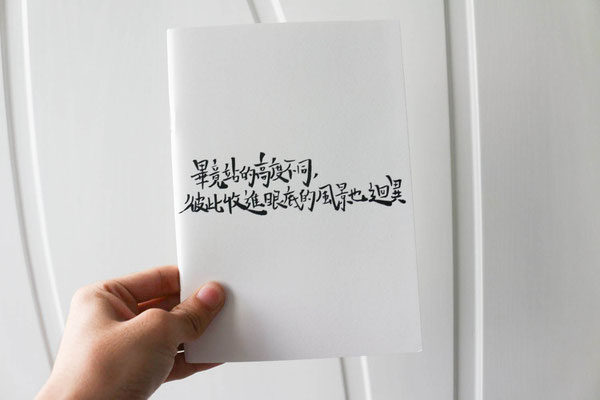 畢竟站的高度不同，
彼此收進眼底的風景也迥異